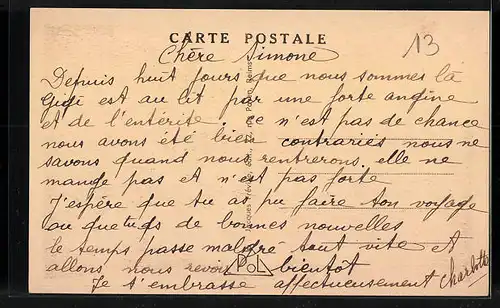 CARTE POSTALE
13
Chère Simone
Depuis huit jours que nous sommes là
Gigi est au lit par une forte angine
et de l'entérite. ce n'est pas de chance
nous avons été bien contrariés nous ne
savons quand nous rentrerons. elle ne
mange pas et n'est pas forte
J'espère que tu as pu faire ton voyage
ou que tu as de bonnes nouvelles
le temps passe malgré tout vite et
allons nous revoir bientôt
Je t'embrasse affectueusement Charlotte
PoL
Reims